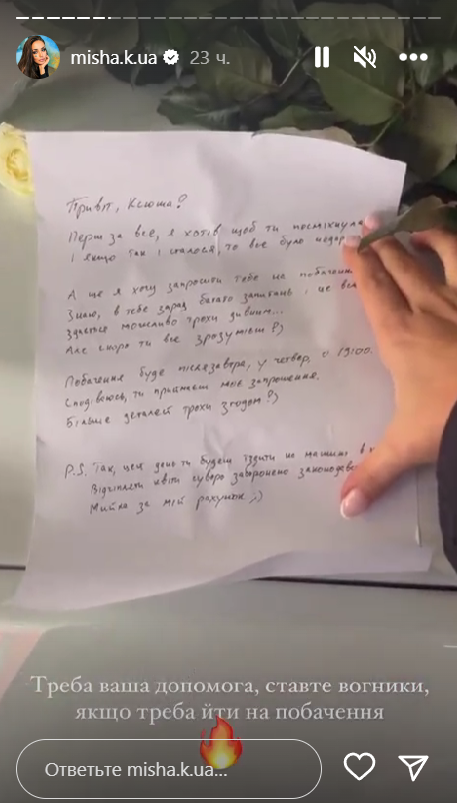 misha.k.ua 23 ч.
Привіт, Ксюша!
Перш за все, я хотів щоб ти посміхнула
І якщо так і сталося, то все було недар
А ще я хочу запросити тебе на побачення
Знаю, в тебе зараз багато запитань і це все
Здається можливо трохи дивним...
Але скоро ти все зрозумієш!)
Побачення буде післязавтра, у четвер, о 19:00.
Сподіваюсь, ти приймеш моє запрошення.
Більше деталей трохи згодом!)
P.S. Так, цей день ти будеш їздити на машині в
Відчіпляти квіти суворо заборонено законодав
Мийка за мій рахунок ;)
Треба ваша допомога, ставте вогники,
якщо треба йти на побачення
Ответьте misha.k.ua...